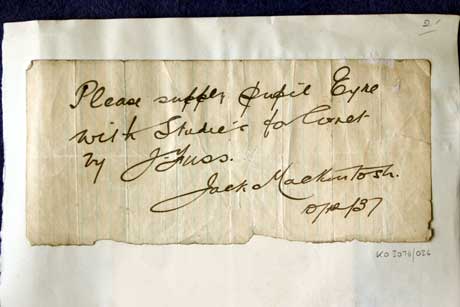 2
Please supply pupil Eyre
with Studies for Cornet
by J. Fuss.
Jack Mackintosh.
KO 2071/026